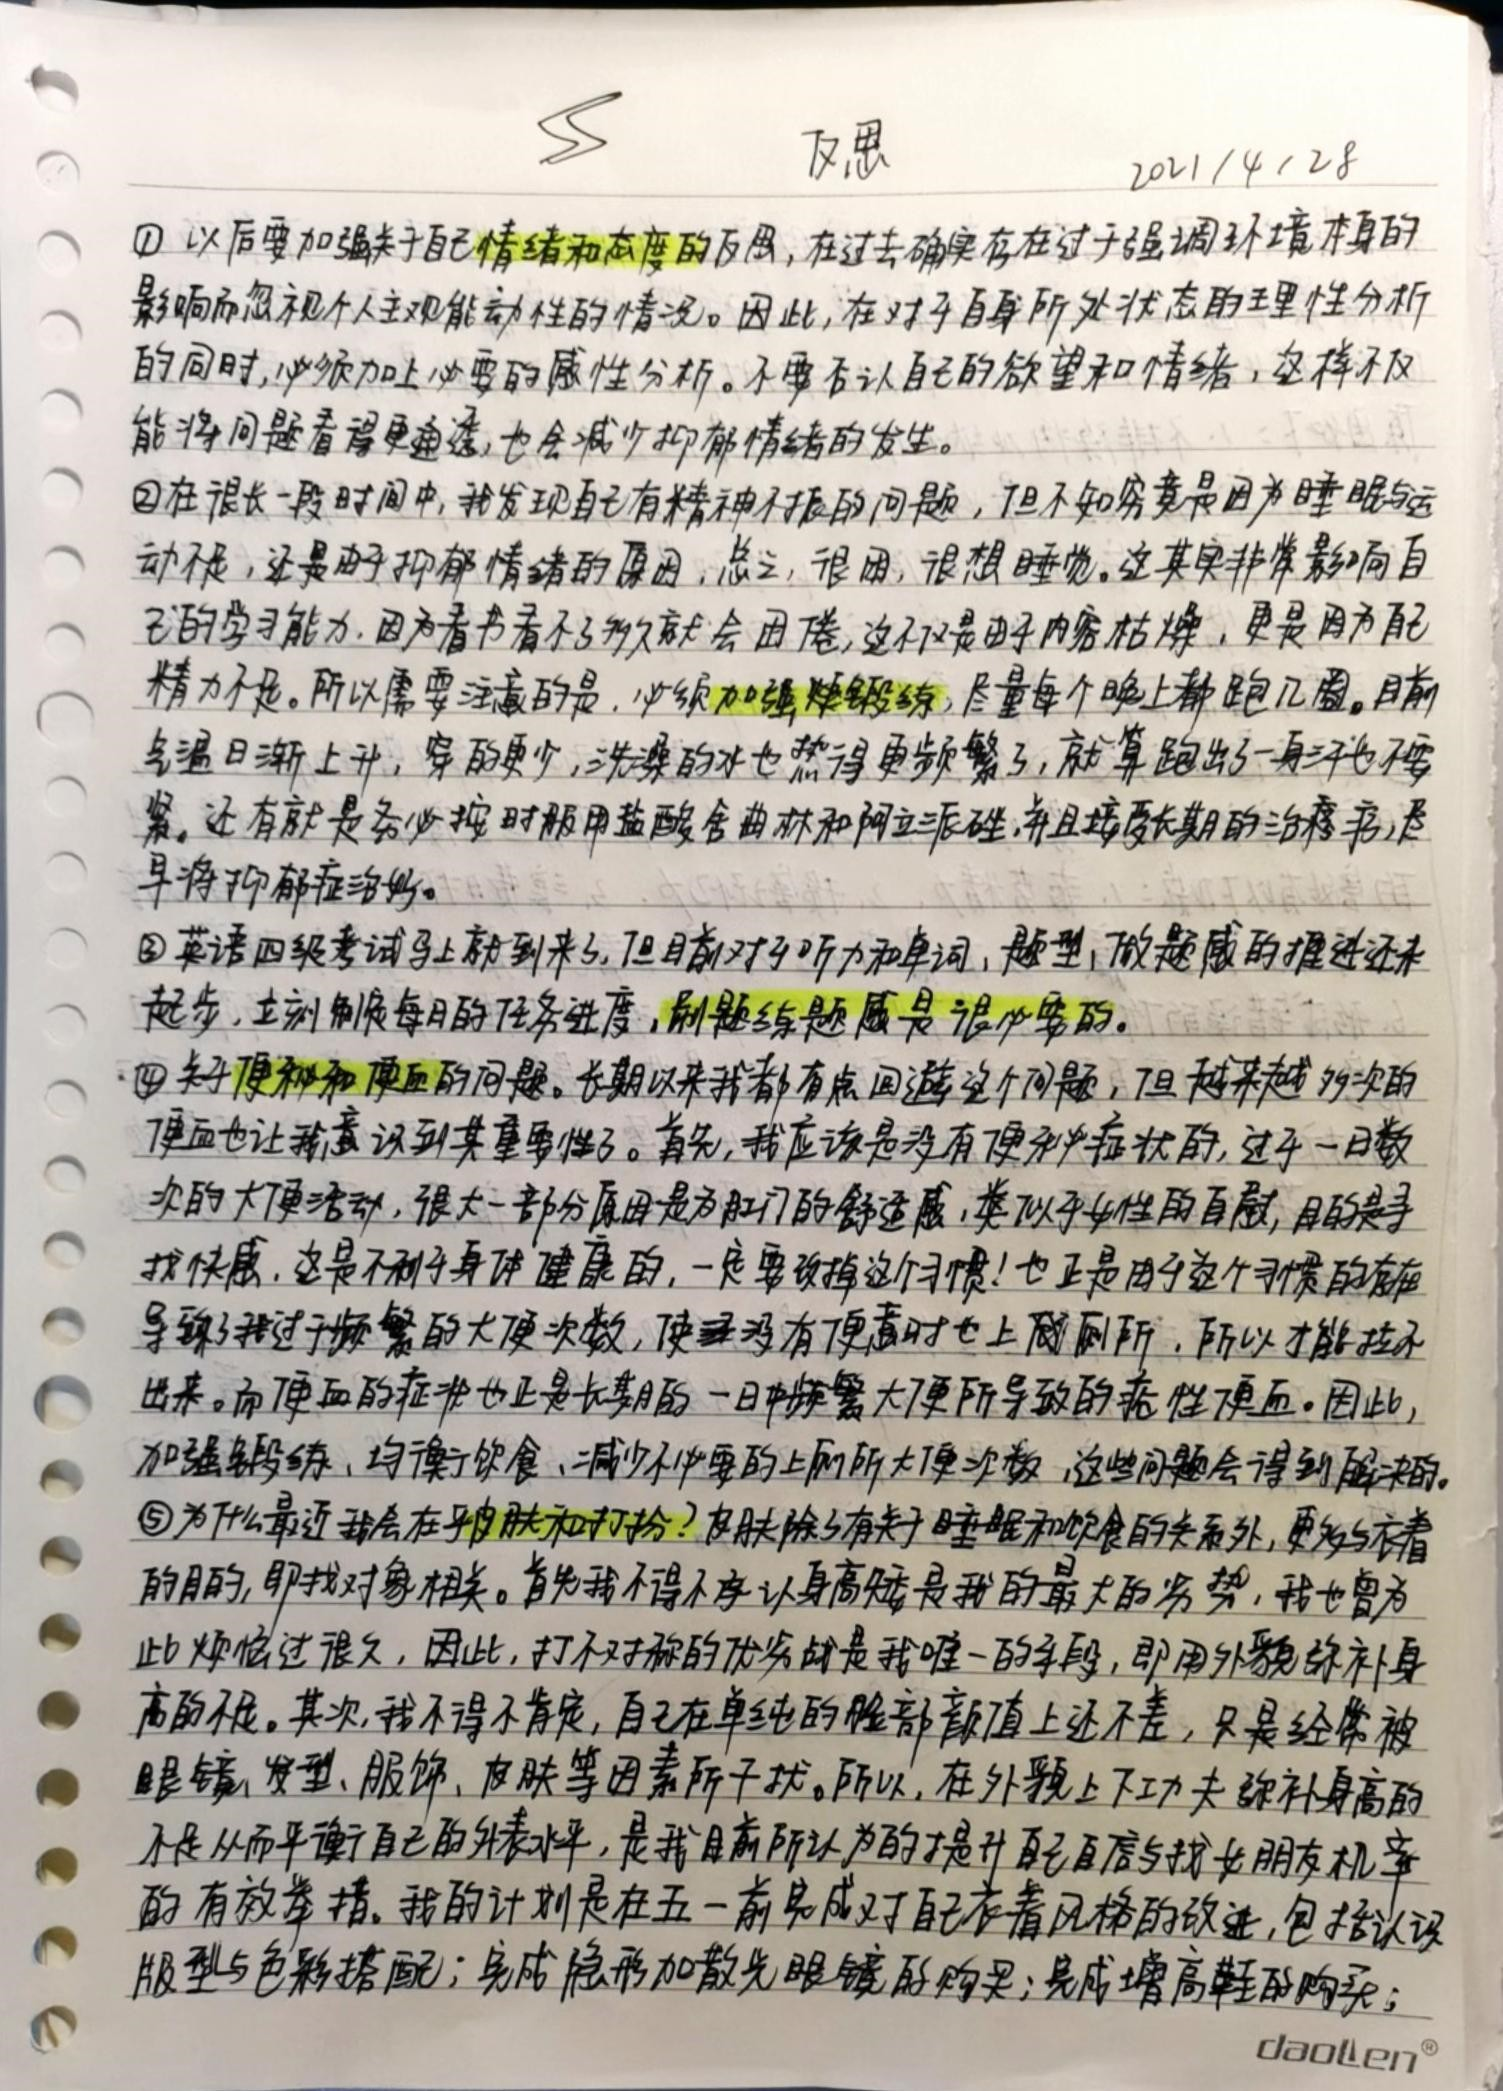 反思
2021/4/28
① 以后要加强关于自己情绪和态度的反思，在过去确实存在过于强调环境本身的
影响而忽视个人主观能动性的情况。因此，在对于自身所处状态的理性分析
的同时，必须加上必要的感性分析。不要否认自己的欲望和情绪，这样不仅
能将问题看得更通透，也会减少抑郁情绪的发生。
②在很长一段时间中，我发现自己有精神不振的问题，但不知究竟是因为睡眠与运
动不足，还是由于抑郁情绪的原因，总之，很困，很想睡觉。这其实非常影响自
己的学习能力，因为看书看不了多久就会困倦，这不仅是由于内容枯燥，更是因为自己
精力不足。所以需要注意的是，必须加强锻练，尽量每个晚上都跑几圈。目前
气温日渐上升，穿的更少，洗澡的水也热得更频繁了，就算跑出了一身汗也不要
紧。还有就是务必按时服用盐酸舍曲林和阿立派唑，并且接受长期的治疗，尽
早将抑郁症治好。
③英语四级考试马上就到来了，但目前对于听力和单词，题型，做题感的推进还未
起步，立刻制定每日的任务进度，刷题练题感是很必要的。
④关于便秘和便血的问题。长期以来我都有点回避这个问题，但越来越多次的
便血也让我意识到其重要性了。首先，我应该是没有便秘症状的，过于一日数
次的大便活动，很大一部分原因是为肛门的舒适感，类似于女性的自慰，目的是寻
找快感，这是不利于身体健康的，一定要改掉这个习惯！也正是由于这个习惯的存在
导致了我过于频繁的大便次数，使没有便意时也上厕所，所以才能拉不
出来。而便血的症状也正是长期的一日中频繁大便所导致的痔性便血。因此，
加强锻练、均衡饮食、减少不必要的上厕所大便次数，这些问题会得到解决的。
⑤为什么最近我会在乎皮肤和打扮？皮肤除了有关于睡眠和饮食的关系外，更多与衣着
的目的，即找对象相关。首先我不得不承认身高矮是我的最大的劣势，我也曾为
此烦恼过很久，因此，打不对称的优劣战是我唯一的手段，即用外貌弥补身
高的不足。其次，我不得不肯定，自己在单纯的脸部颜值上还不差，只是经常被
眼镜、发型、服饰、皮肤等因素所干扰。所以，在外貌上下功夫弥补身高的
不足从而平衡自己的外表水平，是我目前所认为的提升自己自信与找女朋友机率
的有效举措。我的计划是在五一前完成对自己衣着风格的改进，包括认识
版型与色彩搭配；完成隐形加散光眼镜的购买；完成增高鞋的购买；
daoLen®